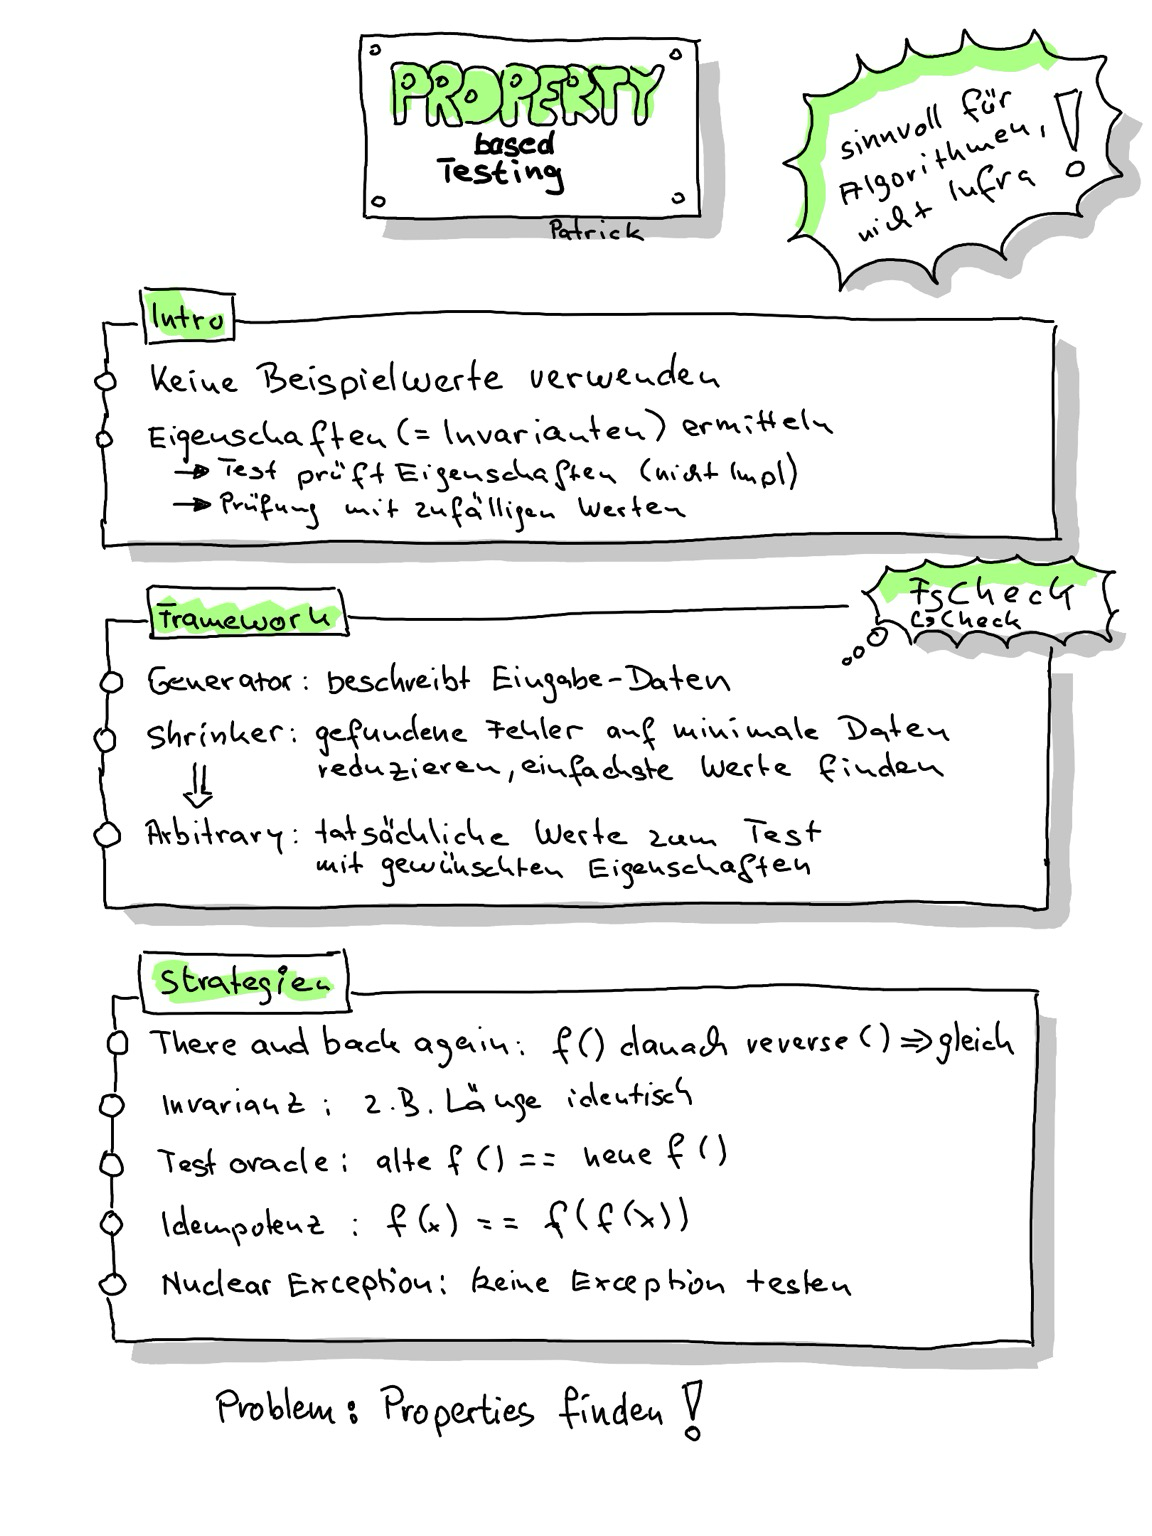 PROPERTY
based
Testing
Patrick
sinnvoll für
Algorithmen,
nicht Infra !
Intro
Keine Beispielwerte verwenden
Eigenschaften (= Invarianten) ermitteln
→ Test prüft Eigenschaften (nicht Impl)
→ Prüfung mit zufälligen Werten
Framework
FsCheck
CsCheck
Generator: beschreibt Eingabe-Daten
Shrinker: gefundene Fehler auf minimale Daten
reduzieren, einfachste Werte finden
⇓
Arbitrary: tatsächliche Werte zum Test
mit gewünschten Eigenschaften
Strategien
There and back again: f() danach reverse() ⇒ gleich
Invarianz: z.B. Länge identisch
Test oracle: alte f() == neue f()
Idempotenz: f(x) == f(f(x))
Nuclear Exception: keine Exception testen
Problem: Properties finden !